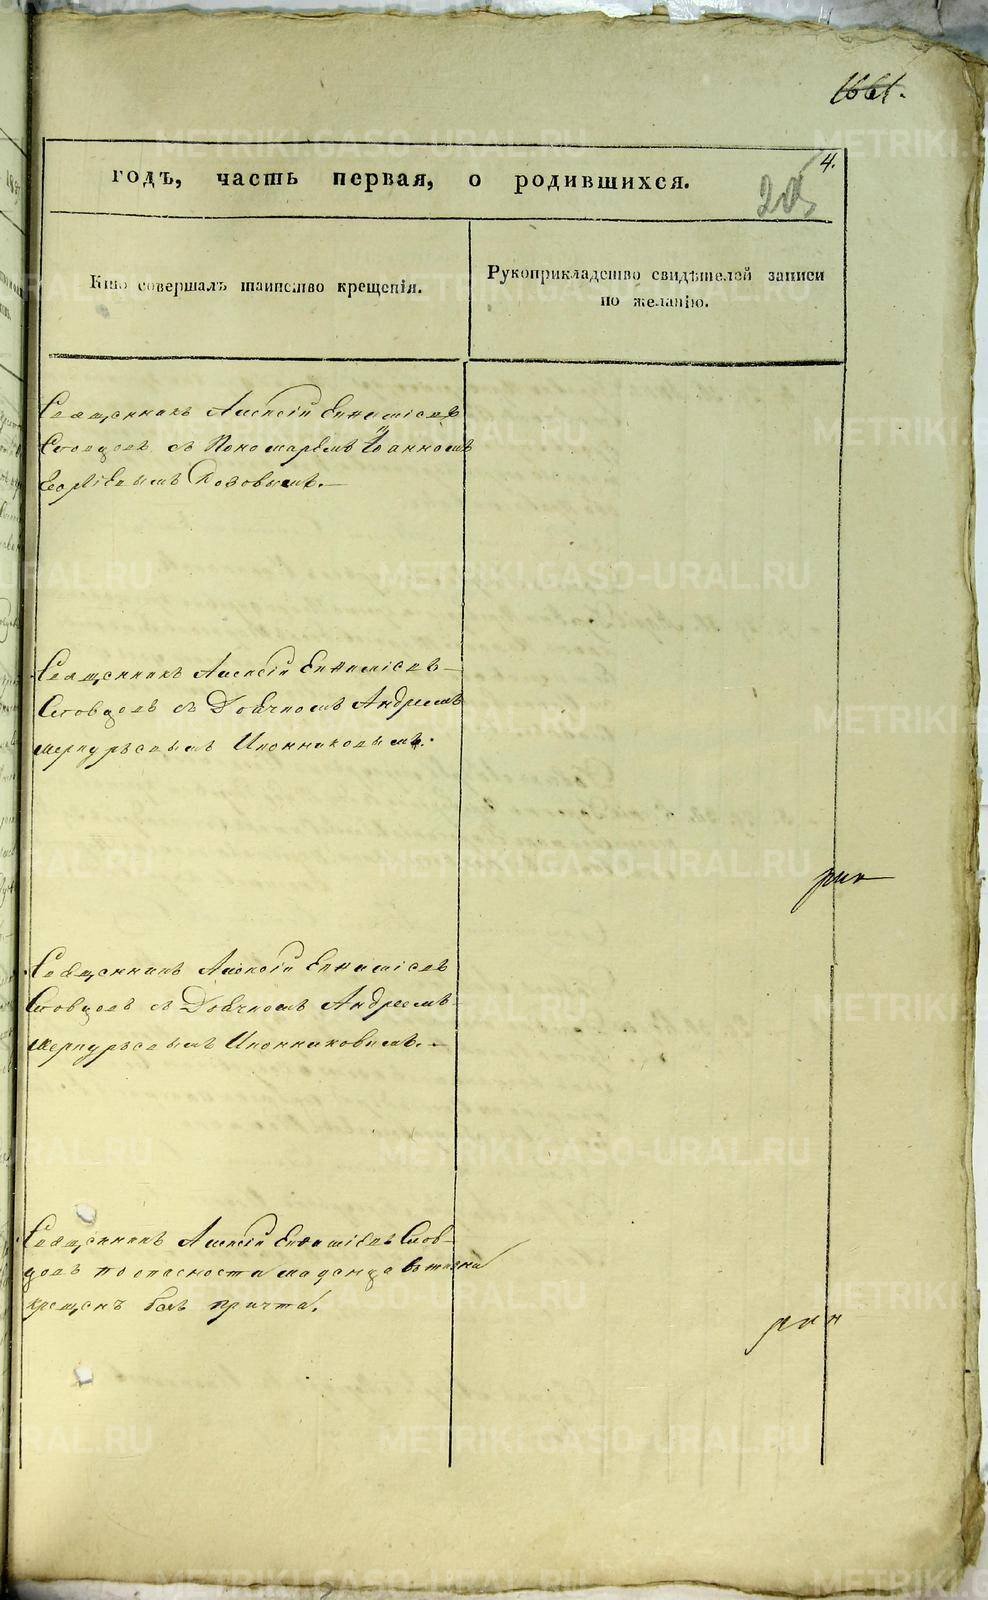 1661.
4.
годъ, часть первая, о родившихся.
205
Кто совершалъ таинство крещенія.
Рукоприкладство свидѣтелей записи
по желанію.
Священникъ Алексій Евѳиміевъ
Словцовъ съ Пономаремъ Іоанномъ
Георгіевымъ
Священникъ Алексій Евѳиміевъ
Словцовъ съ Дьячкомъ Андреемъ
Меркурьевымъ Иконниковымъ.
Священникъ Алексій Евѳиміевъ
Словцовъ съ Дьячкомъ Андреемъ
Меркурьевымъ Иконниковымъ.
Священникъ Алексій Евѳиміевъ Слов-
цовъ по опасности младенца
крещенъ безъ причта.
METRIKI.GASO-URAL.RU